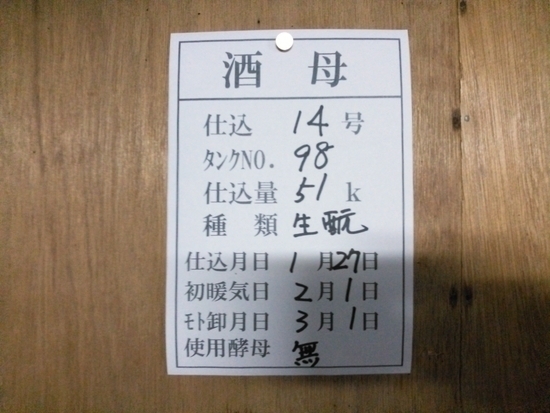 酒 母
仕込 14 号
ﾀﾝｸNO. 98
仕込量 51 k
種 類 生酛
仕込月日 1月27日
初暖気日 2月1日
ﾓﾄ卸月日 3月1日
使用酵母 無